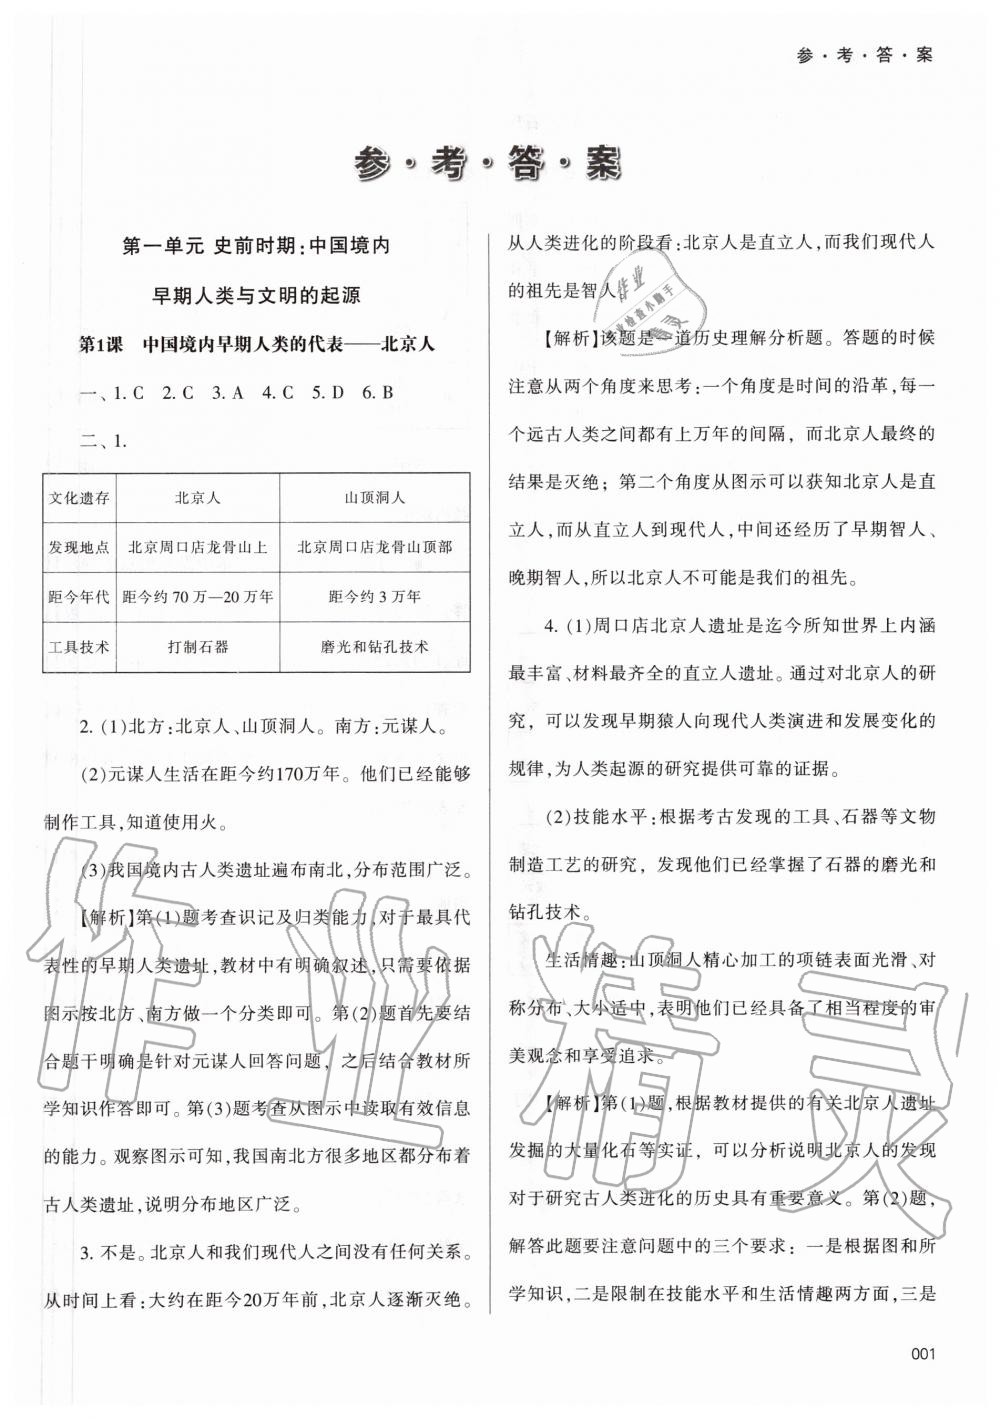 参·考·答·案
参·考·答·案
第一单元 史前时期:中国境内
早期人类与文明的起源
第1课 中国境内早期人类的代表——北京人
一、1. C 2. C 3. A 4. C 5. D 6. B
二、1.
文化遗存 北京人 山顶洞人
发现地点 北京周口店龙骨山上 北京周口店龙骨山顶部
距今年代 距今约 70 万—20 万年 距今约 3 万年
工具技术 打制石器 磨光和钻孔技术
2. (1)北方:北京人、山顶洞人。南方:元谋人。
(2)元谋人生活在距今约170万年。他们已经能够
制作工具,知道使用火。
(3)我国境内古人类遗址遍布南北,分布范围广泛。
【解析】第(1)题考查识记及归类能力,对于最具代
表性的早期人类遗址,教材中有明确叙述,只需要依据
图示按北方、南方做一个分类即可。第(2)题首先要结
合题干明确是针对元谋人回答问题，之后结合教材所
学知识作答即可。第(3)题考查从图示中读取有效信息
的能力。观察图示可知,我国南北方很多地区都分布着
古人类遗址,说明分布地区广泛。
3. 不是。北京人和我们现代人之间没有任何关系。
从时间上看:大约在距今20万年前,北京人逐渐灭绝。
从人类进化的阶段看:北京人是直立人,而我们现代人
的祖先是智人
【解析】该题是一道历史理解分析题。答题的时候
注意从两个角度来思考:一个角度是时间的沿革,每一
个远古人类之间都有上万年的间隔，而北京人最终的
结果是灭绝；第二个角度从图示可以获知北京人是直
立人,而从直立人到现代人,中间还经历了早期智人、
晚期智人,所以北京人不可能是我们的祖先。
4. (1)周口店北京人遗址是迄今所知世界上内涵
最丰富、材料最齐全的直立人遗址。通过对北京人的研
究，可以发现早期猿人向现代人类演进和发展变化的
规律,为人类起源的研究提供可靠的证据。
(2)技能水平:根据考古发现的工具、石器等文物
制造工艺的研究，发现他们已经掌握了石器的磨光和
钻孔技术。
生活情趣:山顶洞人精心加工的项链表面光滑、对
称分布、大小适中,表明他们已经具备了相当程度的审
美观念和享受追求。
【解析】第(1)题,根据教材提供的有关北京人遗址
发掘的大量化石等实证，可以分析说明北京人的发现
对于研究古人类进化的历史具有重要意义。第(2)题,
解答此题要注意问题中的三个要求：一是根据图和所
学知识,二是限制在技能水平和生活情趣两方面,三是
001
作业精灵
作业
作业检查小助手
精灵